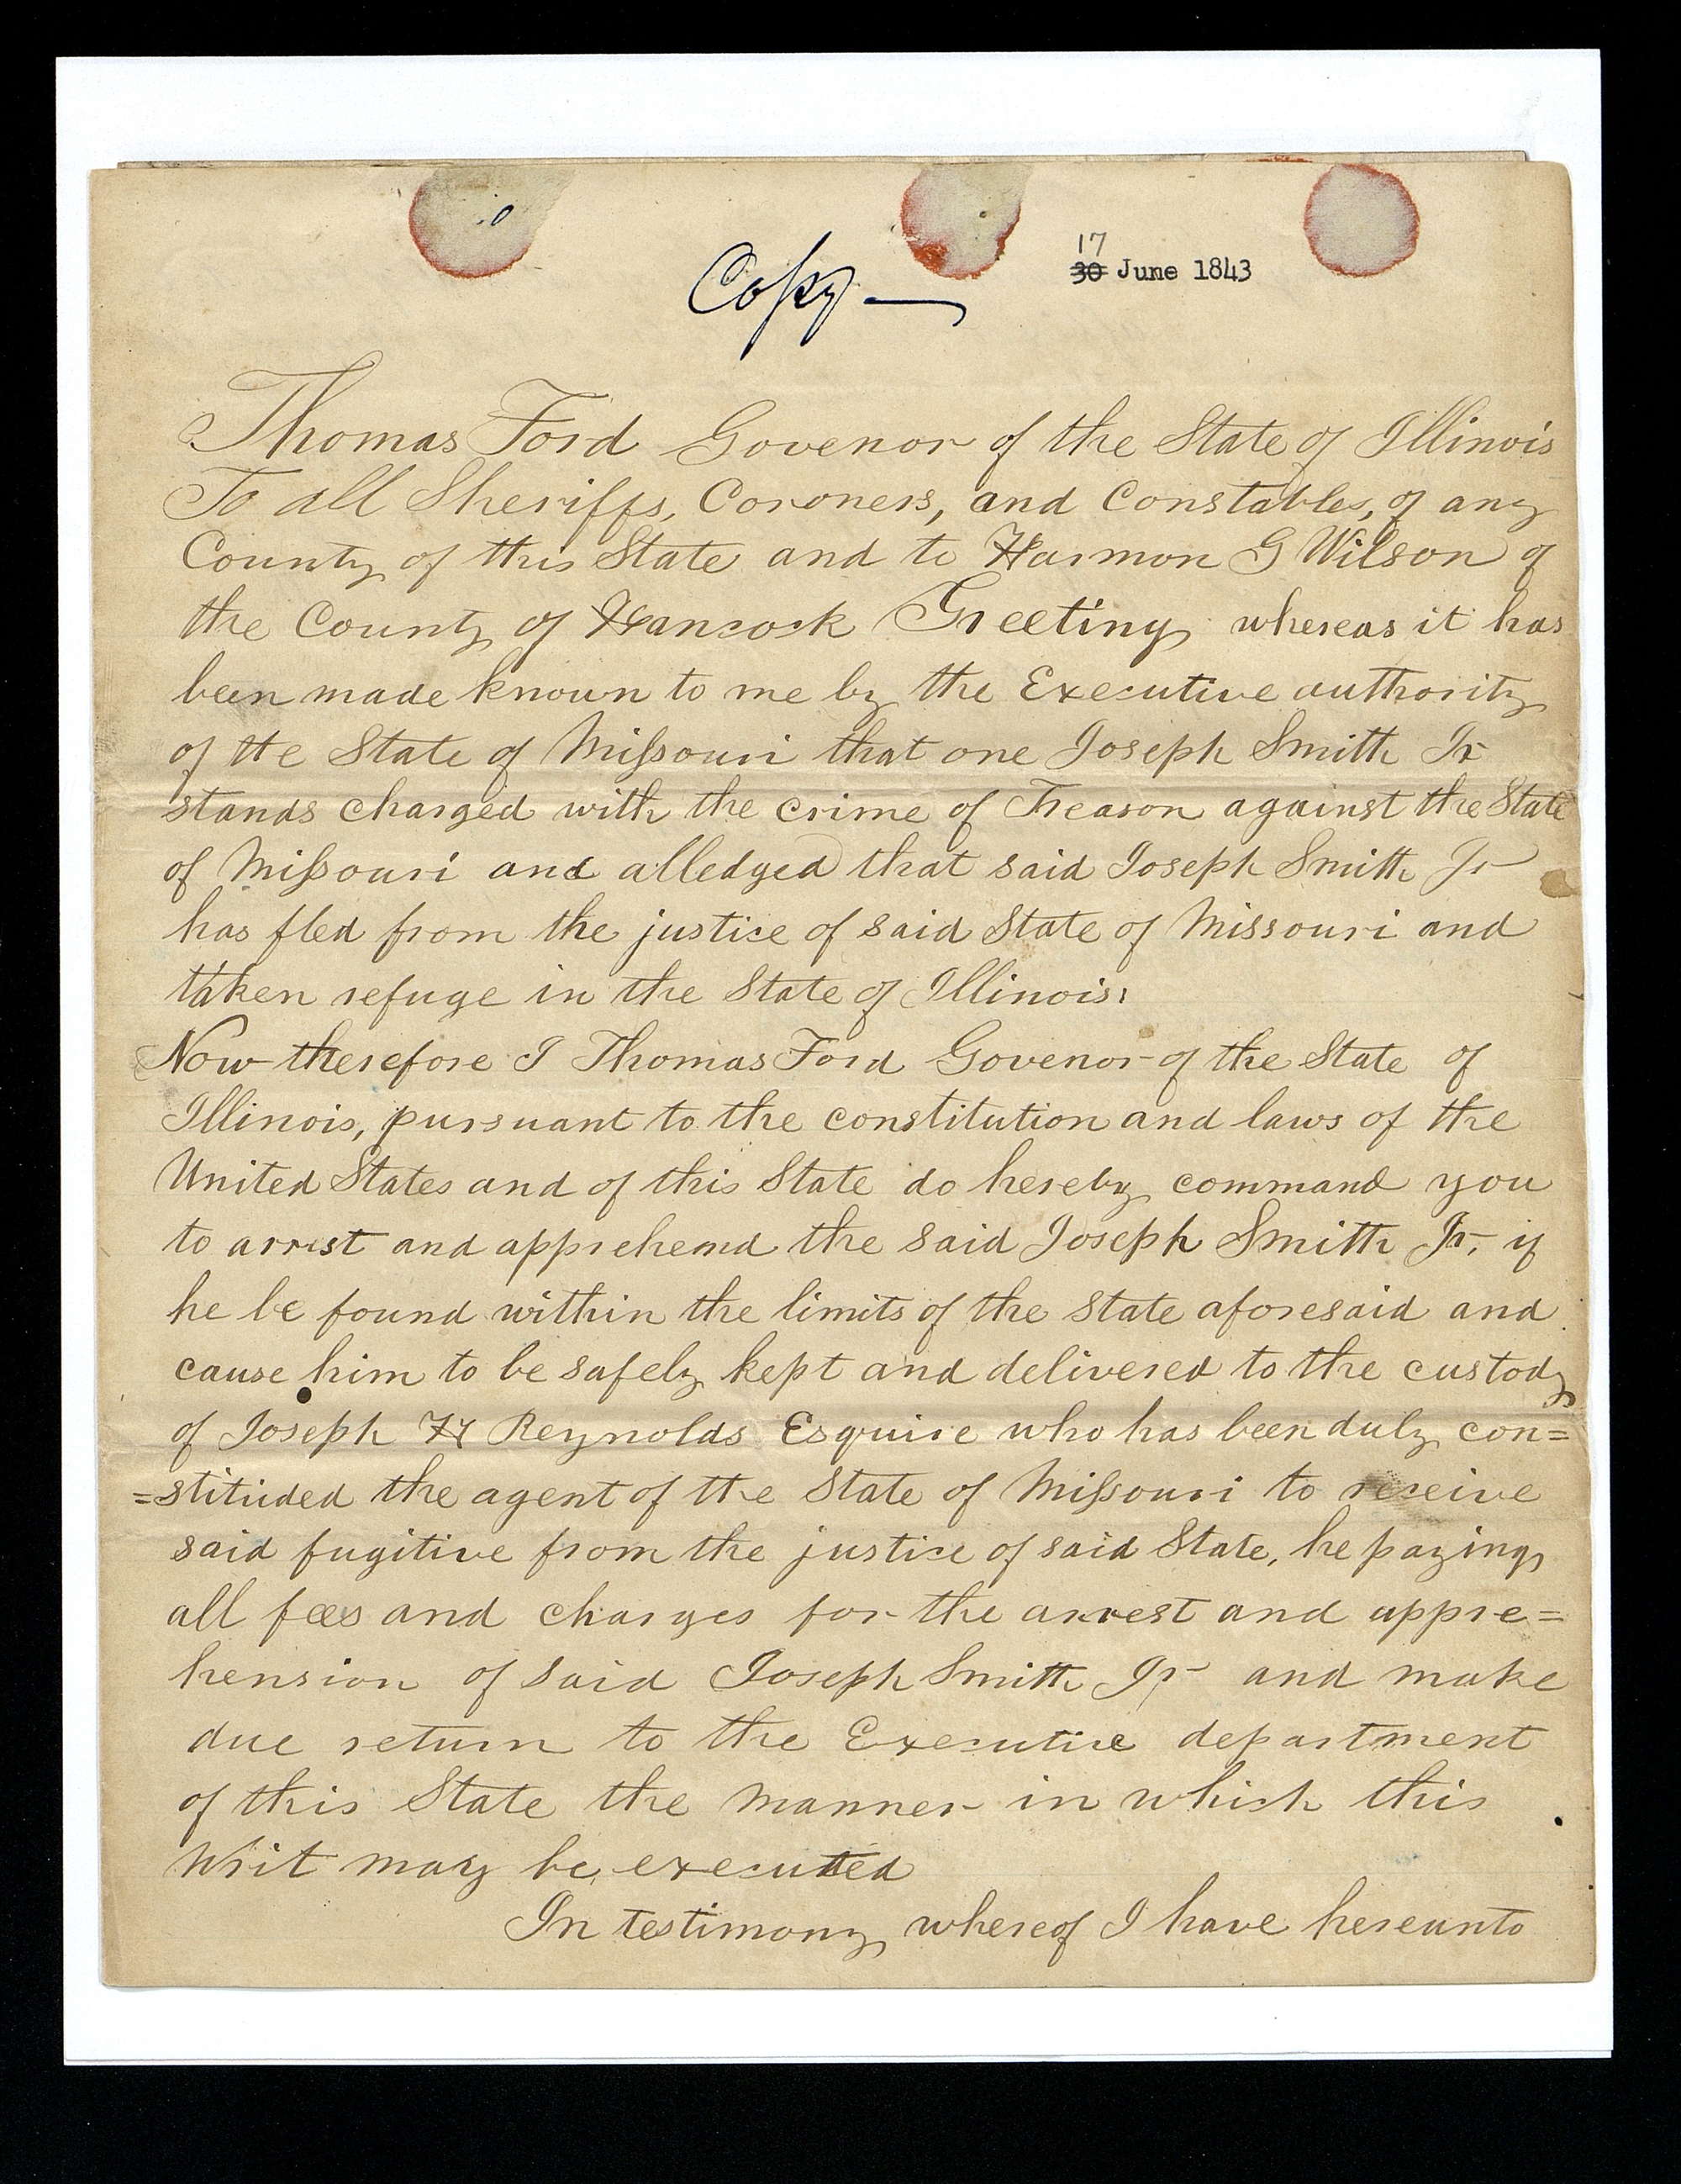 Copy —
17
30 June 1843
Thomas Ford Govenor of the State of Illinois
To all Sheriffs, Coroners, and Constables, of any
County of this State and to Harmon G Wilson of
the County of Hancock Greeting whereas it has
been made known to me by the Executive authority
of the State of Missouri that one Joseph Smith Jr
stands charged with the crime of Treason against the State
of Missouri and alledged that said Joseph Smith Jr
has fled from the justice of said State of Missouri and
taken refuge in the State of Illinois:
Now therefore I Thomas Ford Govenor of the State of
Illinois, pursuant to the constitution and laws of the
United States and of this State do hereby command you
to arrest and apprehend the said Joseph Smith Jr, if
he be found within the limits of the State aforesaid and
cause him to be safely kept and delivered to the custody
of Joseph H Reynolds Esquire who has been duly con=
=stituded the agent of the State of Missouri to receive
said fugitive from the justice of said State, he paying
all fees and charges for the arrest and appre=
hension of said Joseph Smith Jr and make
due return to the Executive department
of this State the manner in which this
Writ may be executed
In testimony whereof I have hereunto